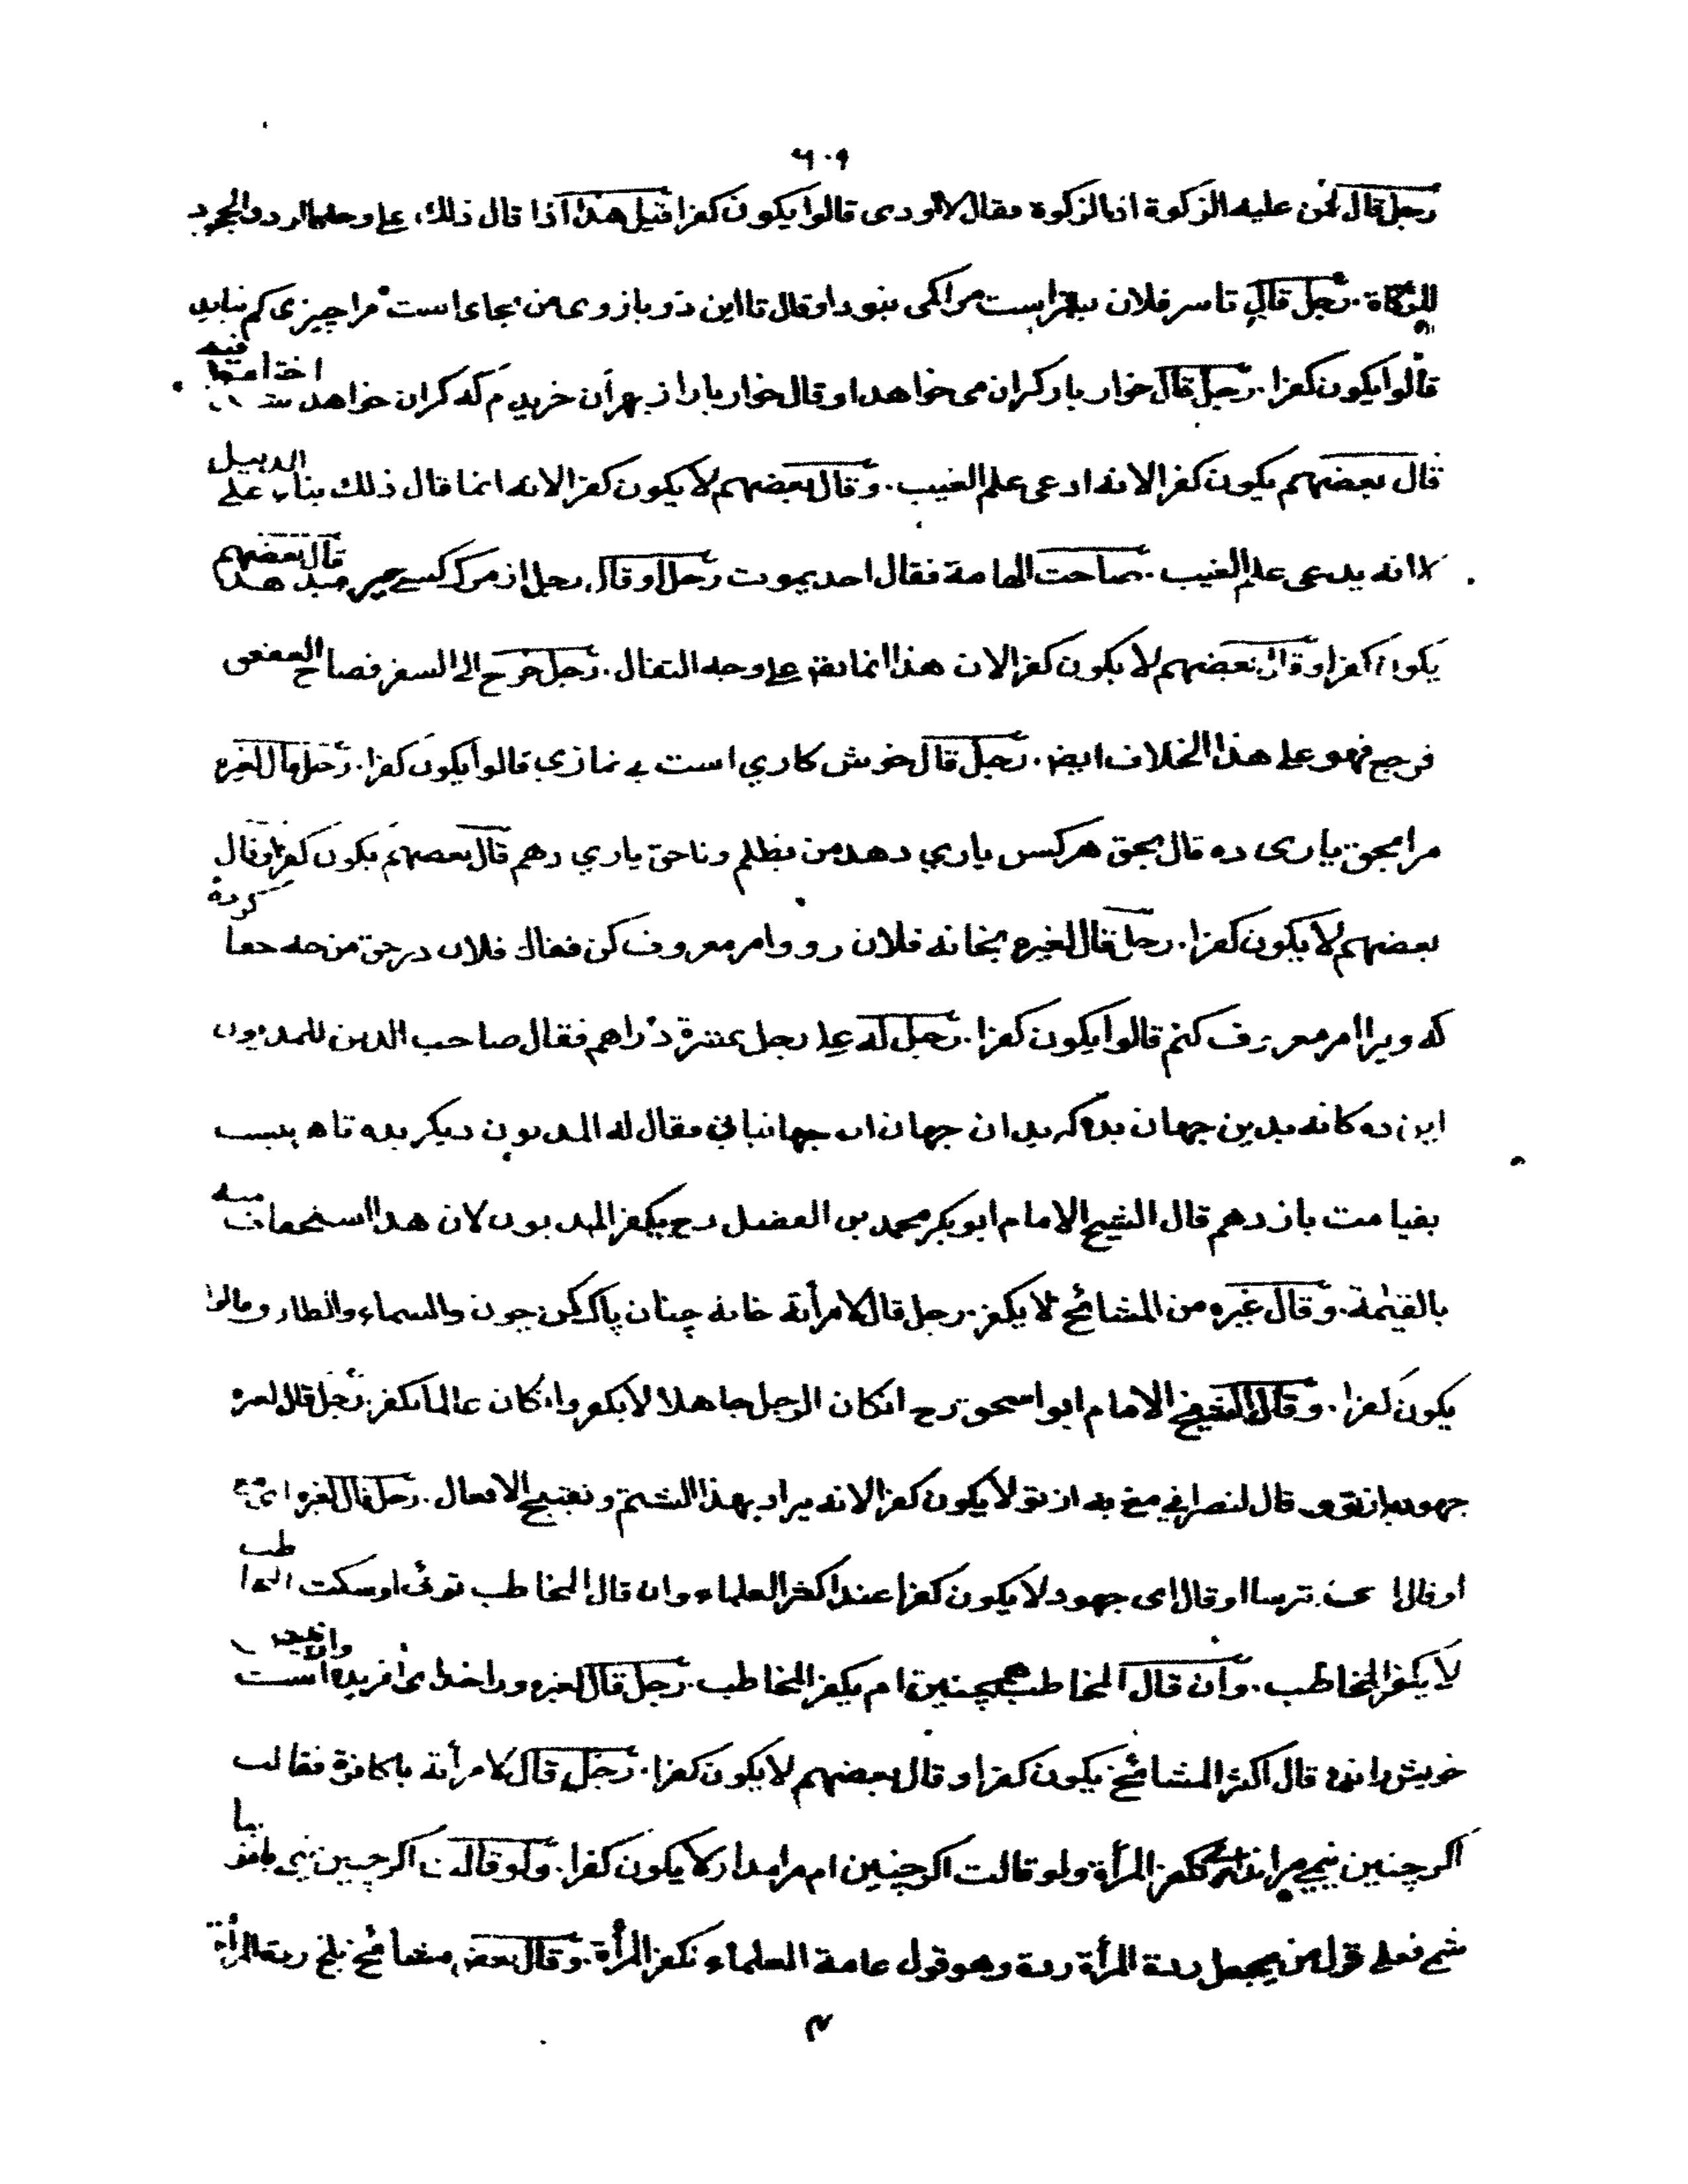 ٦٠٩
رجل قال لمن عليه الزكوة اد الزكوة فقال لا اودى قالوا يكون كفرا قيل هذا اذا قال ذلك على وجه الرد والجحود
للزكاة . رجل قال تا سر فلان بجايست مرا كمى نبود او قال تا اين دو بازوى من بجاى است مرا چيزى كم نيايد
قالوا يكون كفرا . رجل قال خواربار كران مى خواهد او قال خواربار از بهر آن خريدم كه كران خواهد اختلفوا فيه
قال بعضهم يكون كفرا لانه ادعى علم الغيب . وقال بعضهم لا يكون كفرا لانه انما قال ذلك بناء على الدليل
لا انه يدعى علم الغيب . صاحت الهامة فقال احد يموت رجل او قال رجل از مرك كسى هذا قال بعضهم
يكون كفرا وقال بعضهم لا يكون كفرا لان هذا انما يقال على وجه التفال . رجل خرج الى السفر فصاح العقعق
فرجع فهو على هذا الخلاف ايضا . رجل قال خوش كاري است بے نمازي قالوا يكون كفرا . رجل قال لغيره
مرا بحق يارى ده قال بحق هركس ياري دهد من بظلم وناحق ياري دهم قال بعضهم يكون كفرا وقال
بعضهم لا يكون كفرا . رجل قال لغيره بخانه فلان رو وامر معروف كن فقال فلان در حق من چه جفا كرده
كه ويرا امر معروف كنم قالوا يكون كفرا . رجل له على رجل عشرة دراهم فقال صاحب الدين للمديون
اين ده كانه بدين جهان بده كه بدان جهان فقال له المديون ديكر بده تا بيست
بقيامت باز دهم قال الشيخ الامام ابو بكر محمد بن الفضل رح يكفر المديون لان هذا استخفاف منه
بالقيمة . وقال غيره من المشائخ لا يكفر . رجل قال لامرأته خانه چنان پاك كن چون والسماء والطارق قالوا
يكون كفرا . وقال الشيخ الامام ابو اسحق رح ان كان الرجل جاهلا لا يكفر وان كان عالما يكفر . رجل قال لغيره
جهود به از تو او قال لنصراني مغ به از تو لا يكون كفرا لانه يراد بهذا الشتم وتقبيح الافعال . رجل قال لغيره اى مغ
او قال ترسا او قال اى جهود لا يكون كفرا عند اكثر العلماء وان قال المخاطب توئى او سكت المخاطب
لا يكفر المخاطب . وان قال المخاطب همچنين ام يكفر المخاطب . رجل قال لغيره ورا خداى افريده است واز
خويش رانده قال اكثر المشائخ يكون كفرا وقال بعضهم لا يكون كفرا . رجل قال لامرأته يا كافرة فقالت
اكر چنين نيمے مرا تكفر المرأة ولو قالت اكر چنين ام مرا مدار لا يكون كفرا . ولو قالت اكر چنين نيمى با تو
فعلى قول من يجعل ردة المرأة ردة وهو قول عامة العلماء تكفر المرأة . وقال بعض مشائخ بلخ ردة المرأة